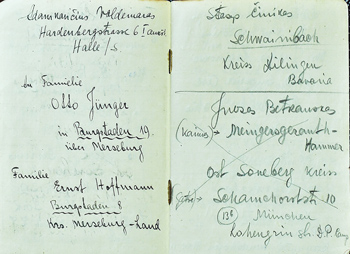 Stankavičius Valdemaras
Hardenbergstrasse 6
Halle/S
bei Familie
Otto Jünger
in Burgstaden 19.
über Merseburg
Familie
Ernst Hoffmann
Burgstaden 8
Krs. Merseburg-Land
Stasys
Schwainibach
Kreiss Dilingen
Bavaria
Juozas
(Kaimas)
Hammer
Ost Soneberg Kreiss
Scharnhorststr 10
(13b) München
Lohengrin str. D.P.